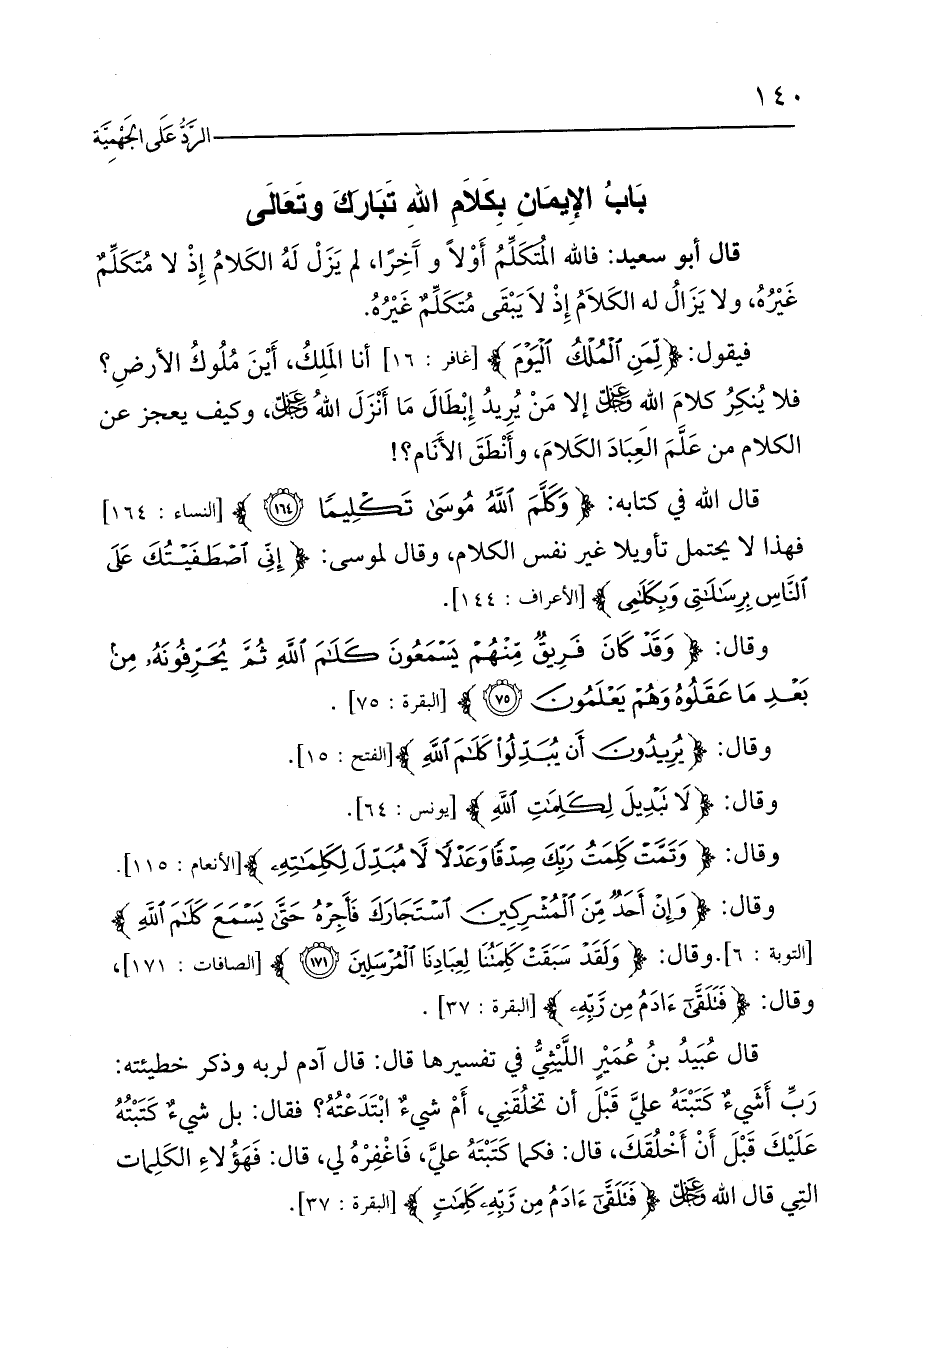 ١٤٠
الرَّدُّ عَلَى الجَهْمِيَّة
بَابُ الإِيمَانِ بِكَلَامِ اللهِ تَبَارَكَ وتَعَالَى
قال أبو سعيد: فالله المُتَكَلِّمُ أَوْلاً و آخِرًا، لم يَزَلْ لَهُ الكَلامُ إِذْ لا مُتَكَلِّمٌ
غَيْرُهُ، ولا يَزَالُ له الكَلاَمُ إِذْ لاَ يَبْقَى مُتَكَلِّمٌ غَيْرُهُ.
فيقول: ﴿لِّمَنِ ٱلْمُلْكُ ٱلْيَوْمَ﴾ [غافر : ١٦] أنا المَلِكُ، أَيْنَ مُلُوكُ الأرضِ؟
فلا يُنكِرُ كلامَ الله عَزَّوَجَلَّ إلا مَنْ يُرِيدُ إِبْطَالَ مَا أَنْزَلَ اللهُ عَزَّوَجَلَّ، وكيف يعجز عن
الكلام من عَلَّمَ العِبَادَ الكَلامَ، وأَنْطَقَ الأَنَام؟!
قال الله في كتابه: ﴿وَكَلَّمَ ٱللَّهُ مُوسَىٰ تَكْلِيمًا ١٦٤﴾ [النساء : ١٦٤]
فهذا لا يحتمل تأويلا غير نفس الكلام، وقال لموسى: ﴿إِنِّي ٱصْطَفَيْتُكَ عَلَى
ٱلنَّاسِ بِرِسَٰلَٰتِي وَبِكَلَٰمِي﴾ [الأعراف : ١٤٤].
وقال: ﴿وَقَدْ كَانَ فَرِيقٌ مِّنْهُمْ يَسْمَعُونَ كَلَٰمَ ٱللَّهِ ثُمَّ يُحَرِّفُونَهُۥ مِنۢ
بَعْدِ مَا عَقَلُوهُ وَهُمْ يَعْلَمُونَ ٧٥﴾ [البقرة : ٧٥] .
وقال: ﴿يُرِيدُونَ أَن يُبَدِّلُوا۟ كَلَٰمَ ٱللَّهِ﴾[الفتح : ١٥].
وقال: ﴿لَا نَبْدِيلَ لِكَلِمَٰتِ ٱللَّهِ﴾ [يونس : ٦٤].
وقال: ﴿وَتَمَّتْ كَلِمَتُ رَبِّكَ صِدْقًا وَعَدْلًا لَّا مُبَدِّلَ لِكَلِمَٰتِهِۦ﴾[الأنعام : ١١٥].
وقال: ﴿وَإِنْ أَحَدٌ مِّنَ ٱلْمُشْرِكِينَ ٱسْتَجَارَكَ فَأَجِرْهُ حَتَّىٰ يَسْمَعَ كَلَٰمَ ٱللَّهِ﴾
[التوبة : ٦].وقال: ﴿وَلَقَدْ سَبَقَتْ كَلِمَتُنَا لِعِبَادِنَا ٱلْمُرْسَلِينَ ١٧١﴾ [الصافات : ١٧١]،
وقال: ﴿فَتَلَقَّىٰٓ ءَادَمُ مِن رَّبِّهِۦ﴾ [البقرة : ٣٧] .
قال عُبَيدُ بنُ عُمَيْرٍ اللَّيْثِيُّ في تفسيرها قال: قال آدم لربه وذكر خطيئته:
رَبِّ أَشَيءٌ كَتَبْتَهُ عليَّ قَبْلَ أن تخلُقَنِي، أَمْ شيءٌ ابْتَدَعْتُهُ؟ فقال: بل شيءٌ كَتَبْتُهُ
عَلَيْكَ قَبْلَ أَنْ أَخْلُقَكَ، قال: فكما كَتَبْتَهُ عليَّ، فَاغْفِرْهُ لي، قال: فَهَؤُلاءِ الكَلِمات
التِي قال الله عَزَّوَجَلَّ ﴿فَتَلَقَّىٰٓ ءَادَمُ مِن رَّبِّهِۦ كَلِمَٰتٍ﴾ [البقرة : ٣٧].